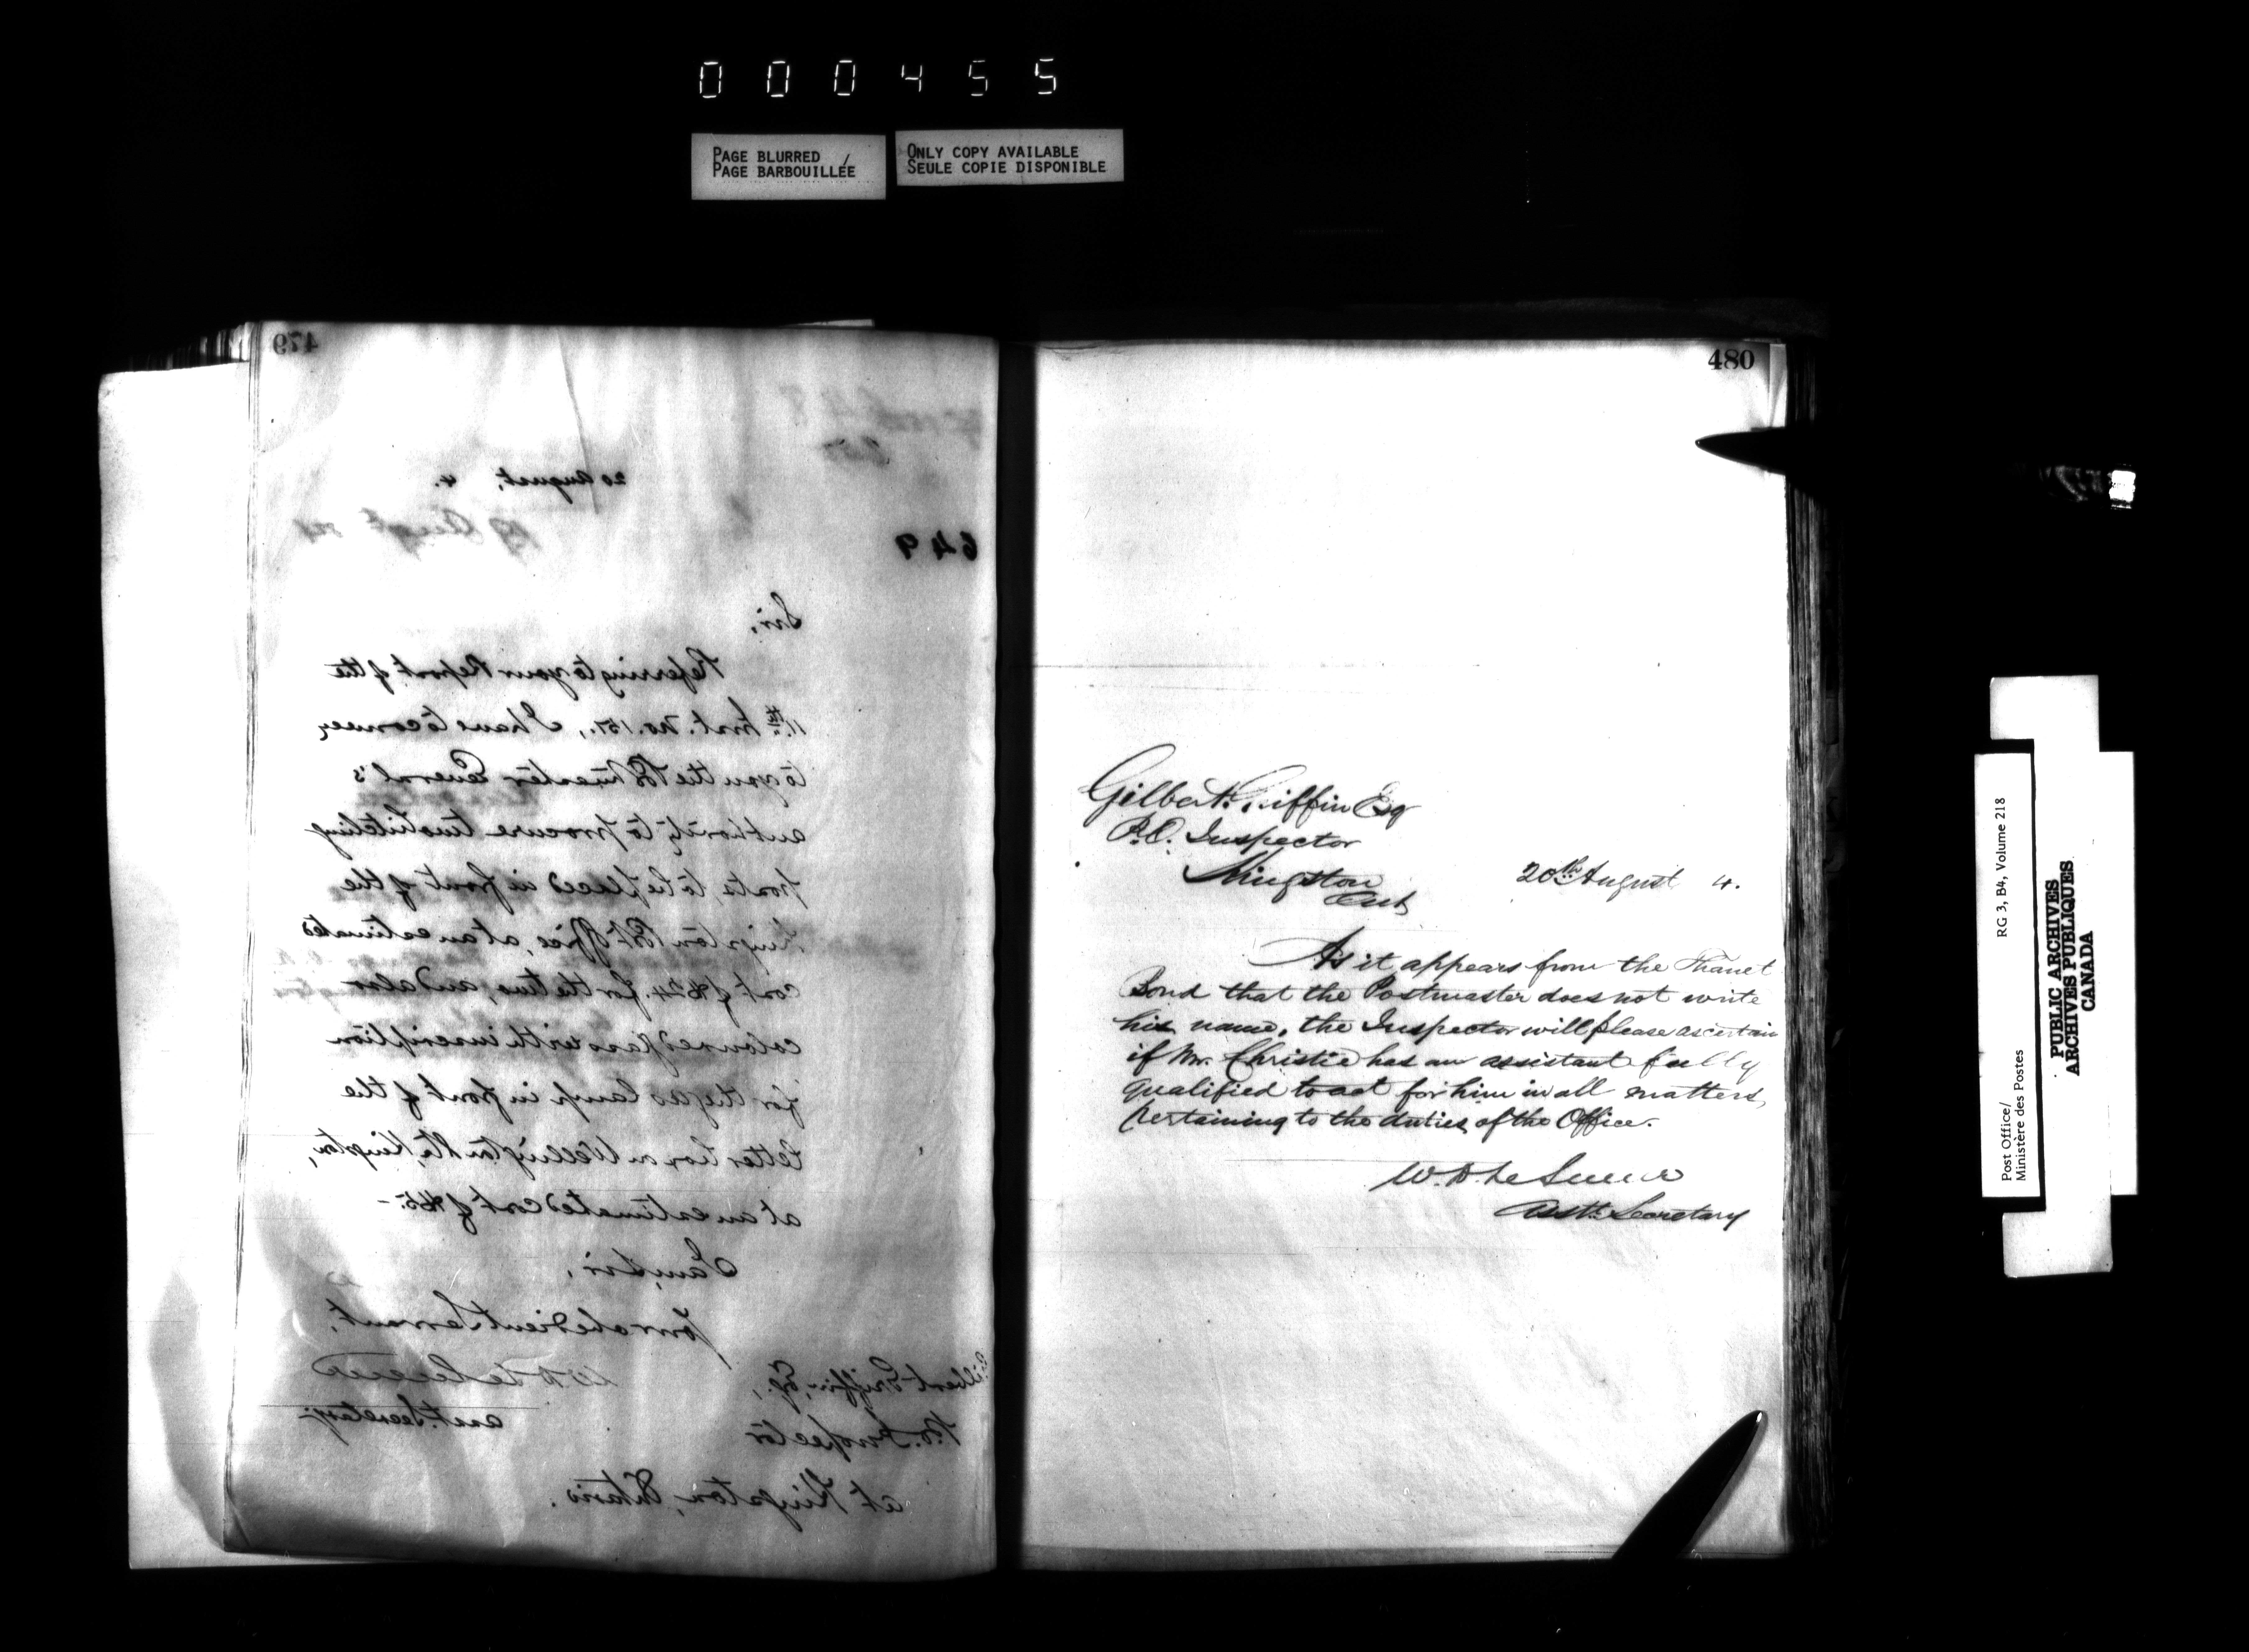 000455
PAGE BLURRED /
PAGE BARBOUILLÉE
ONLY COPY AVAILABLE
SEULE COPIE DISPONIBLE
479
20 August, 4.
649
Sir,
Referring to your Report of the
11th Inst. No. 151., I have to convey
to you the Postmaster General's
authority to procure two hitching
posts, to be placed in front of the
Kingston Post Office, at an estimated
cost of $24. for the two, and also
coloured glass with inscription
for the gas lamp in front of the
letter box on Wellington St., Kingston,
at an estimated cost of $5.-
I am, Sir,
Your obedient Servant,
W D LeSueur
Asst. Secretary.
Gilbert Griffin, Esq.,
P.O. Inspector
at Kingston, Ontario.
480
Gilbert Griffin Esq
P.O. Inspector
Kingston
Ont
20th August 4.
As it appears from the Thanet
Bond that the Postmaster does not write
his name, the Inspector will please ascertain
if Mr. Christie has an assistant fully
qualified to act for him in all matters,
pertaining to the duties of the Office.
W. D. LeSueur
Asst. Secretary
Post Office/
Ministère des Postes
RG 3, B4, Volume 218
PUBLIC ARCHIVES
ARCHIVES PUBLIQUES
CANADA